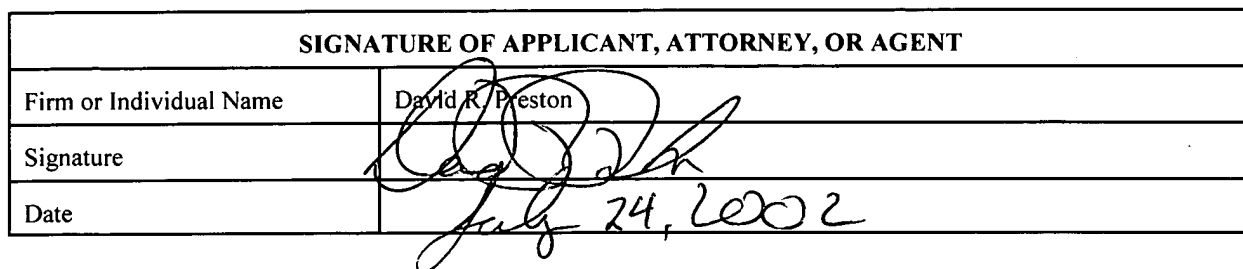 SIGNATURE OF APPLICANT, ATTORNEY, OR AGENT
Firm or Individual Name David R. Preston
Signature
Date July 24, 2002